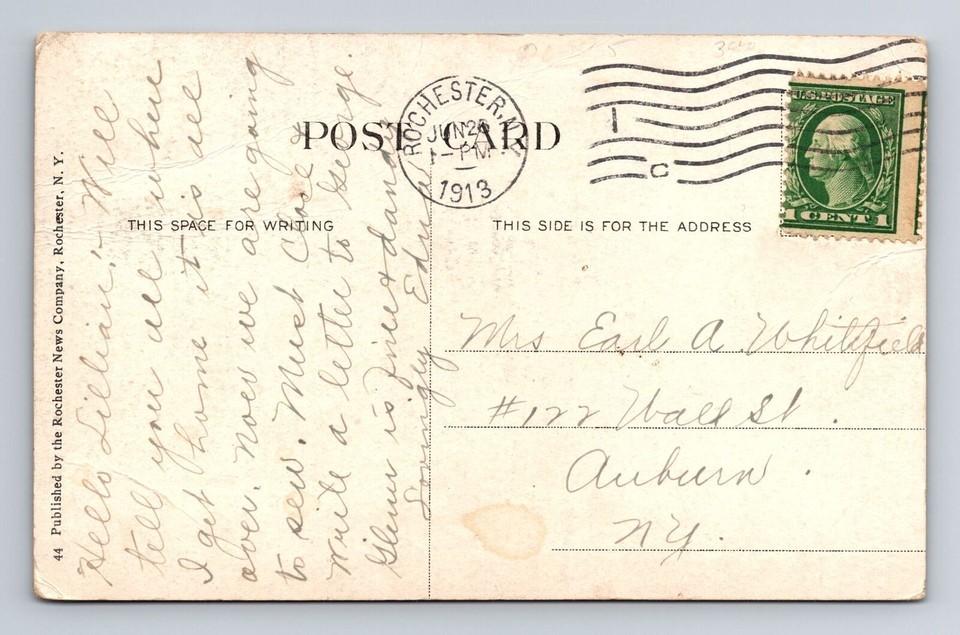 POST CARD
ROCHESTER, N.Y.
JUN 26
1 - PM
1913
C
U.S. POSTAGE
1 CENT 1
THIS SPACE FOR WRITING
THIS SIDE IS FOR THE ADDRESS
44 Published by the Rochester News Company, Rochester, N. Y.
Hello Lillian:- Will
tell you all when
I get home it is all
over. Now we are going
to sew. Must close &
write a letter to George.
Glenn is fine & dandy
Lovingly Edna
Mrs Earl A Whitfield
#122 Wall St.
Auburn.
NY.